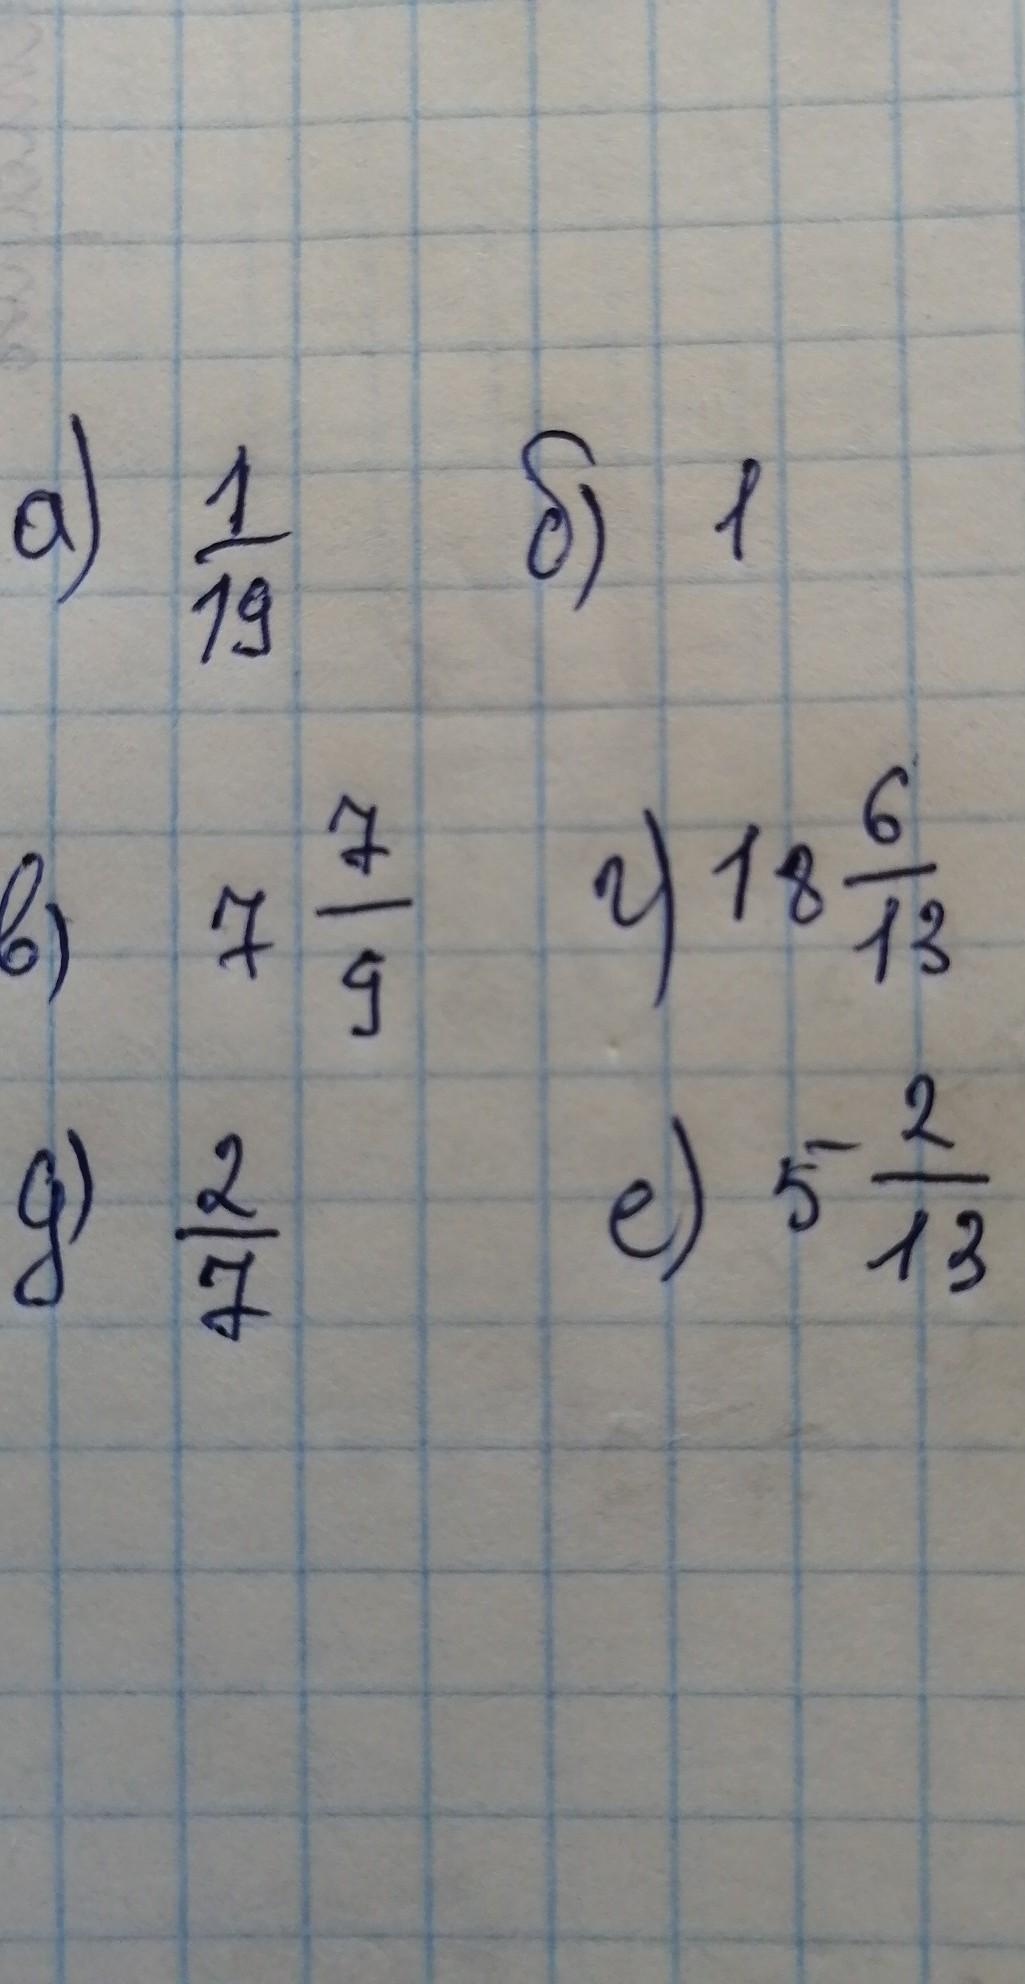 а) 1/19 б) 1
в) 7 7/9 г) 18 6/13
д) 2/7 е) 5 2/13